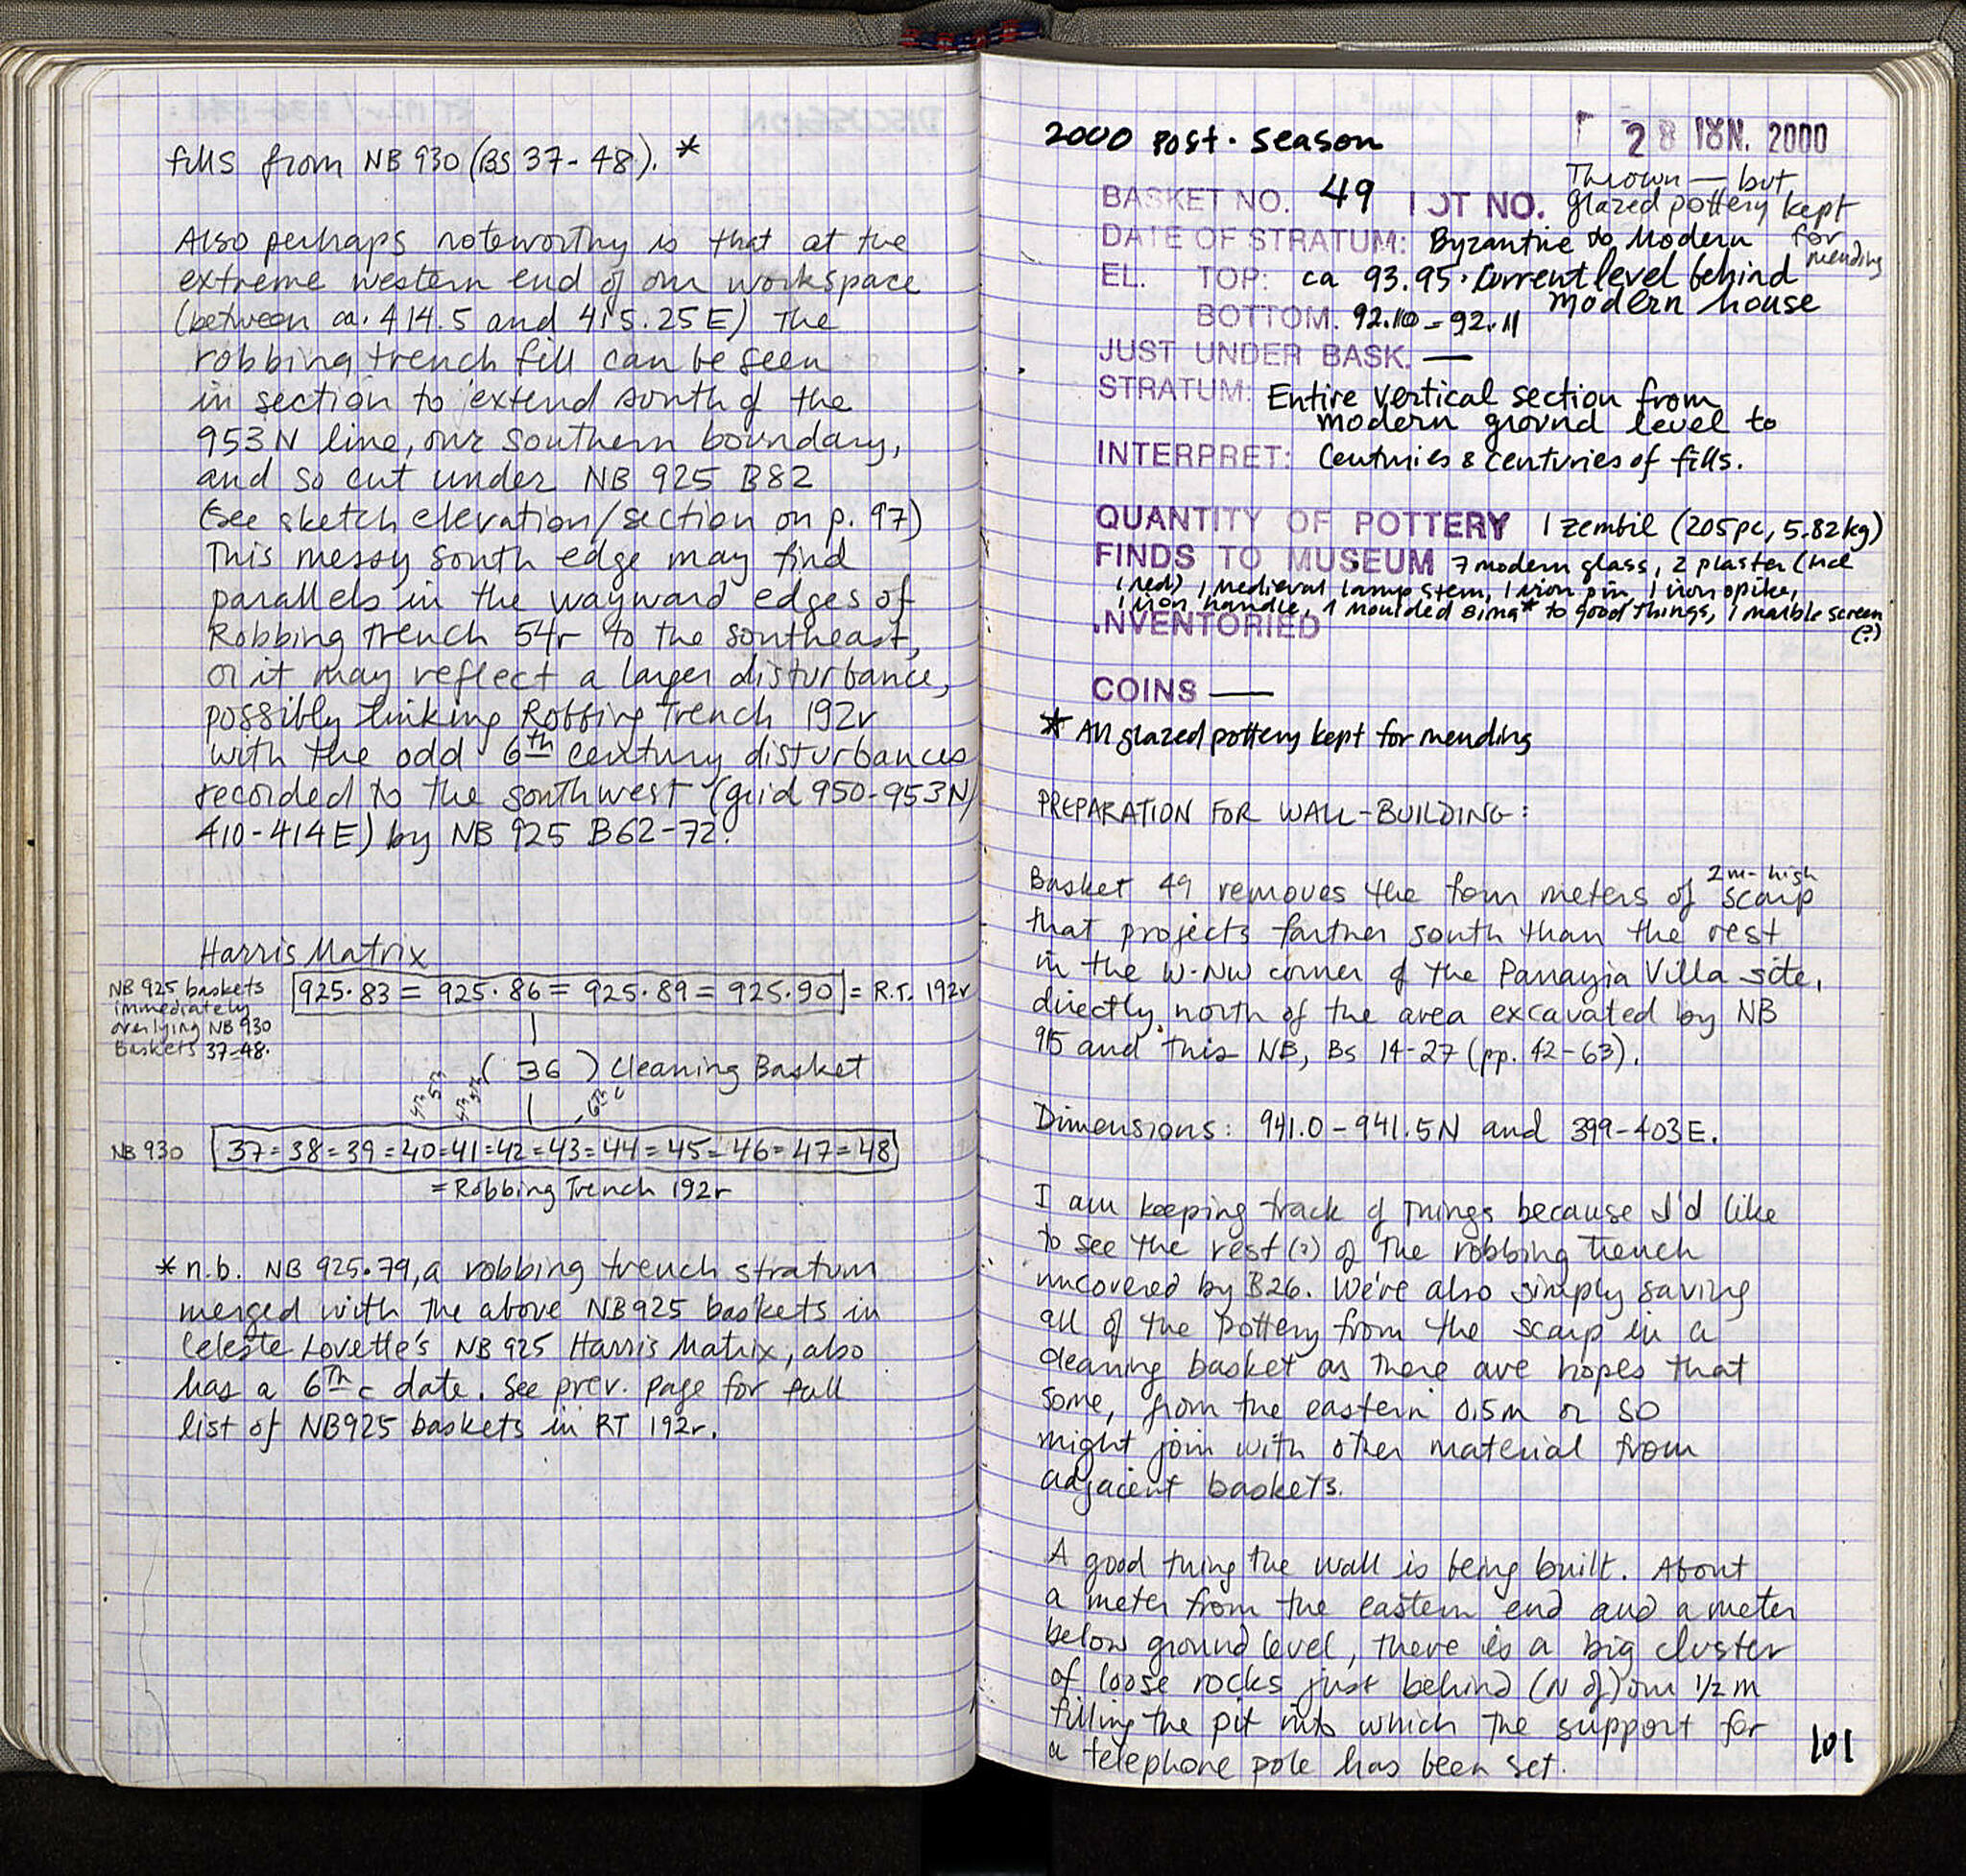 fills from NB 930 (BS 37-48). *
Also perhaps noteworthy is that at the
extreme western end of our workspace
(between ca. 414.5 and 415.25 E) the
robbing trench fill can be seen
in section to extend south of the
953 N line, our southern boundary,
and so cut under NB 925 B82
(see sketch elevation/section on p. 97)
This messy south edge may find
parallels in the wayward edges of
Robbing Trench 54r to the southeast,
or it may reflect a larger disturbance,
possibly linking Robbing Trench 192r
with the odd 6th century disturbances
recorded to the southwest (grid 950-953N/
410-414E) by NB 925 B62-72.
Harris Matrix
NB 925 baskets
immediately
overlying NB 930
Baskets 37-48.
925.83 = 925.86 = 925.89 = 925.90 = R.T. 192r
( 36 ) Cleaning Basket
4th 5th 4th 5th 6th c
NB 930 37=38=39=40=41=42=43=44=45=46=47=48
= Robbing Trench 192r
* n.b. NB 925.79, a robbing trench stratum
merged with the above NB925 baskets in
Celeste Lovette's NB 925 Harris Matrix, also
has a 6th c date. See prev. page for full
list of NB925 baskets in RT 192r.
2000 Post-season
28 ΙΟΥΝ. 2000
Thrown — but
glazed pottery kept
for
mending
BASKET NO. 49 LOT NO.
DATE OF STRATUM: Byzantine to Modern
EL. TOP: ca 93.95. Current level behind
modern house
BOTTOM. 92.10 - 92.11
JUST UNDER BASK. —
STRATUM: Entire vertical section from
modern ground level to
INTERPRET: Centuries & centuries of fills.
QUANTITY OF POTTERY 1 zembil (205pc, 5.82kg)
FINDS TO MUSEUM 7 modern glass, 2 plaster (incl
1 red) 1 medieval lamp stem, 1 iron pin, 1 iron spike,
1 iron handle, 1 moulded sima* to good things, 1 marble screen
(?)
INVENTORIED
COINS —
* All glazed pottery kept for mending
PREPARATION FOR WALL-BUILDING:
Basket 49 removes the four meters of 2m-high scarp
that projects farther south than the rest
in the W-NW corner of the Panayia Villa site,
directly north of the area excavated by NB
915 and this NB, Bs 14-27 (pp. 42-63).
Dimensions: 941.0-941.5N and 399-403E.
I am keeping track of things because I'd like
to see the rest (?) of the robbing trench
uncovered by B26. We're also simply saving
all of the pottery from the scarp in a
cleaning basket as there are hopes that
some, from the eastern 0.5m or so
might join with other material from
adjacent baskets.
A good thing the wall is being built. About
a meter from the eastern end and a meter
below ground level, there is a big cluster
of loose rocks just behind (N of) our 1/2 m
filling the pit into which the support for
a telephone pole has been set.
101